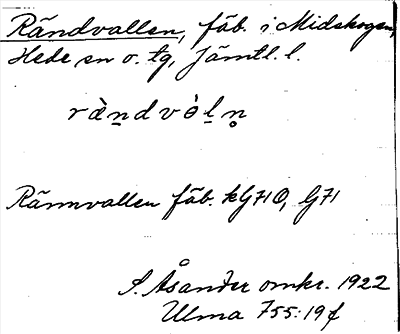 Rändvallen, fäb. i Midskogen,
Hede sn o. tg, Jämtl. l.
rä̀n̲dvò̀l̲n̥
Rännvallen fäb. kG71Ö, G71
S. Åsander omkr. 1922
Ulma 755:19